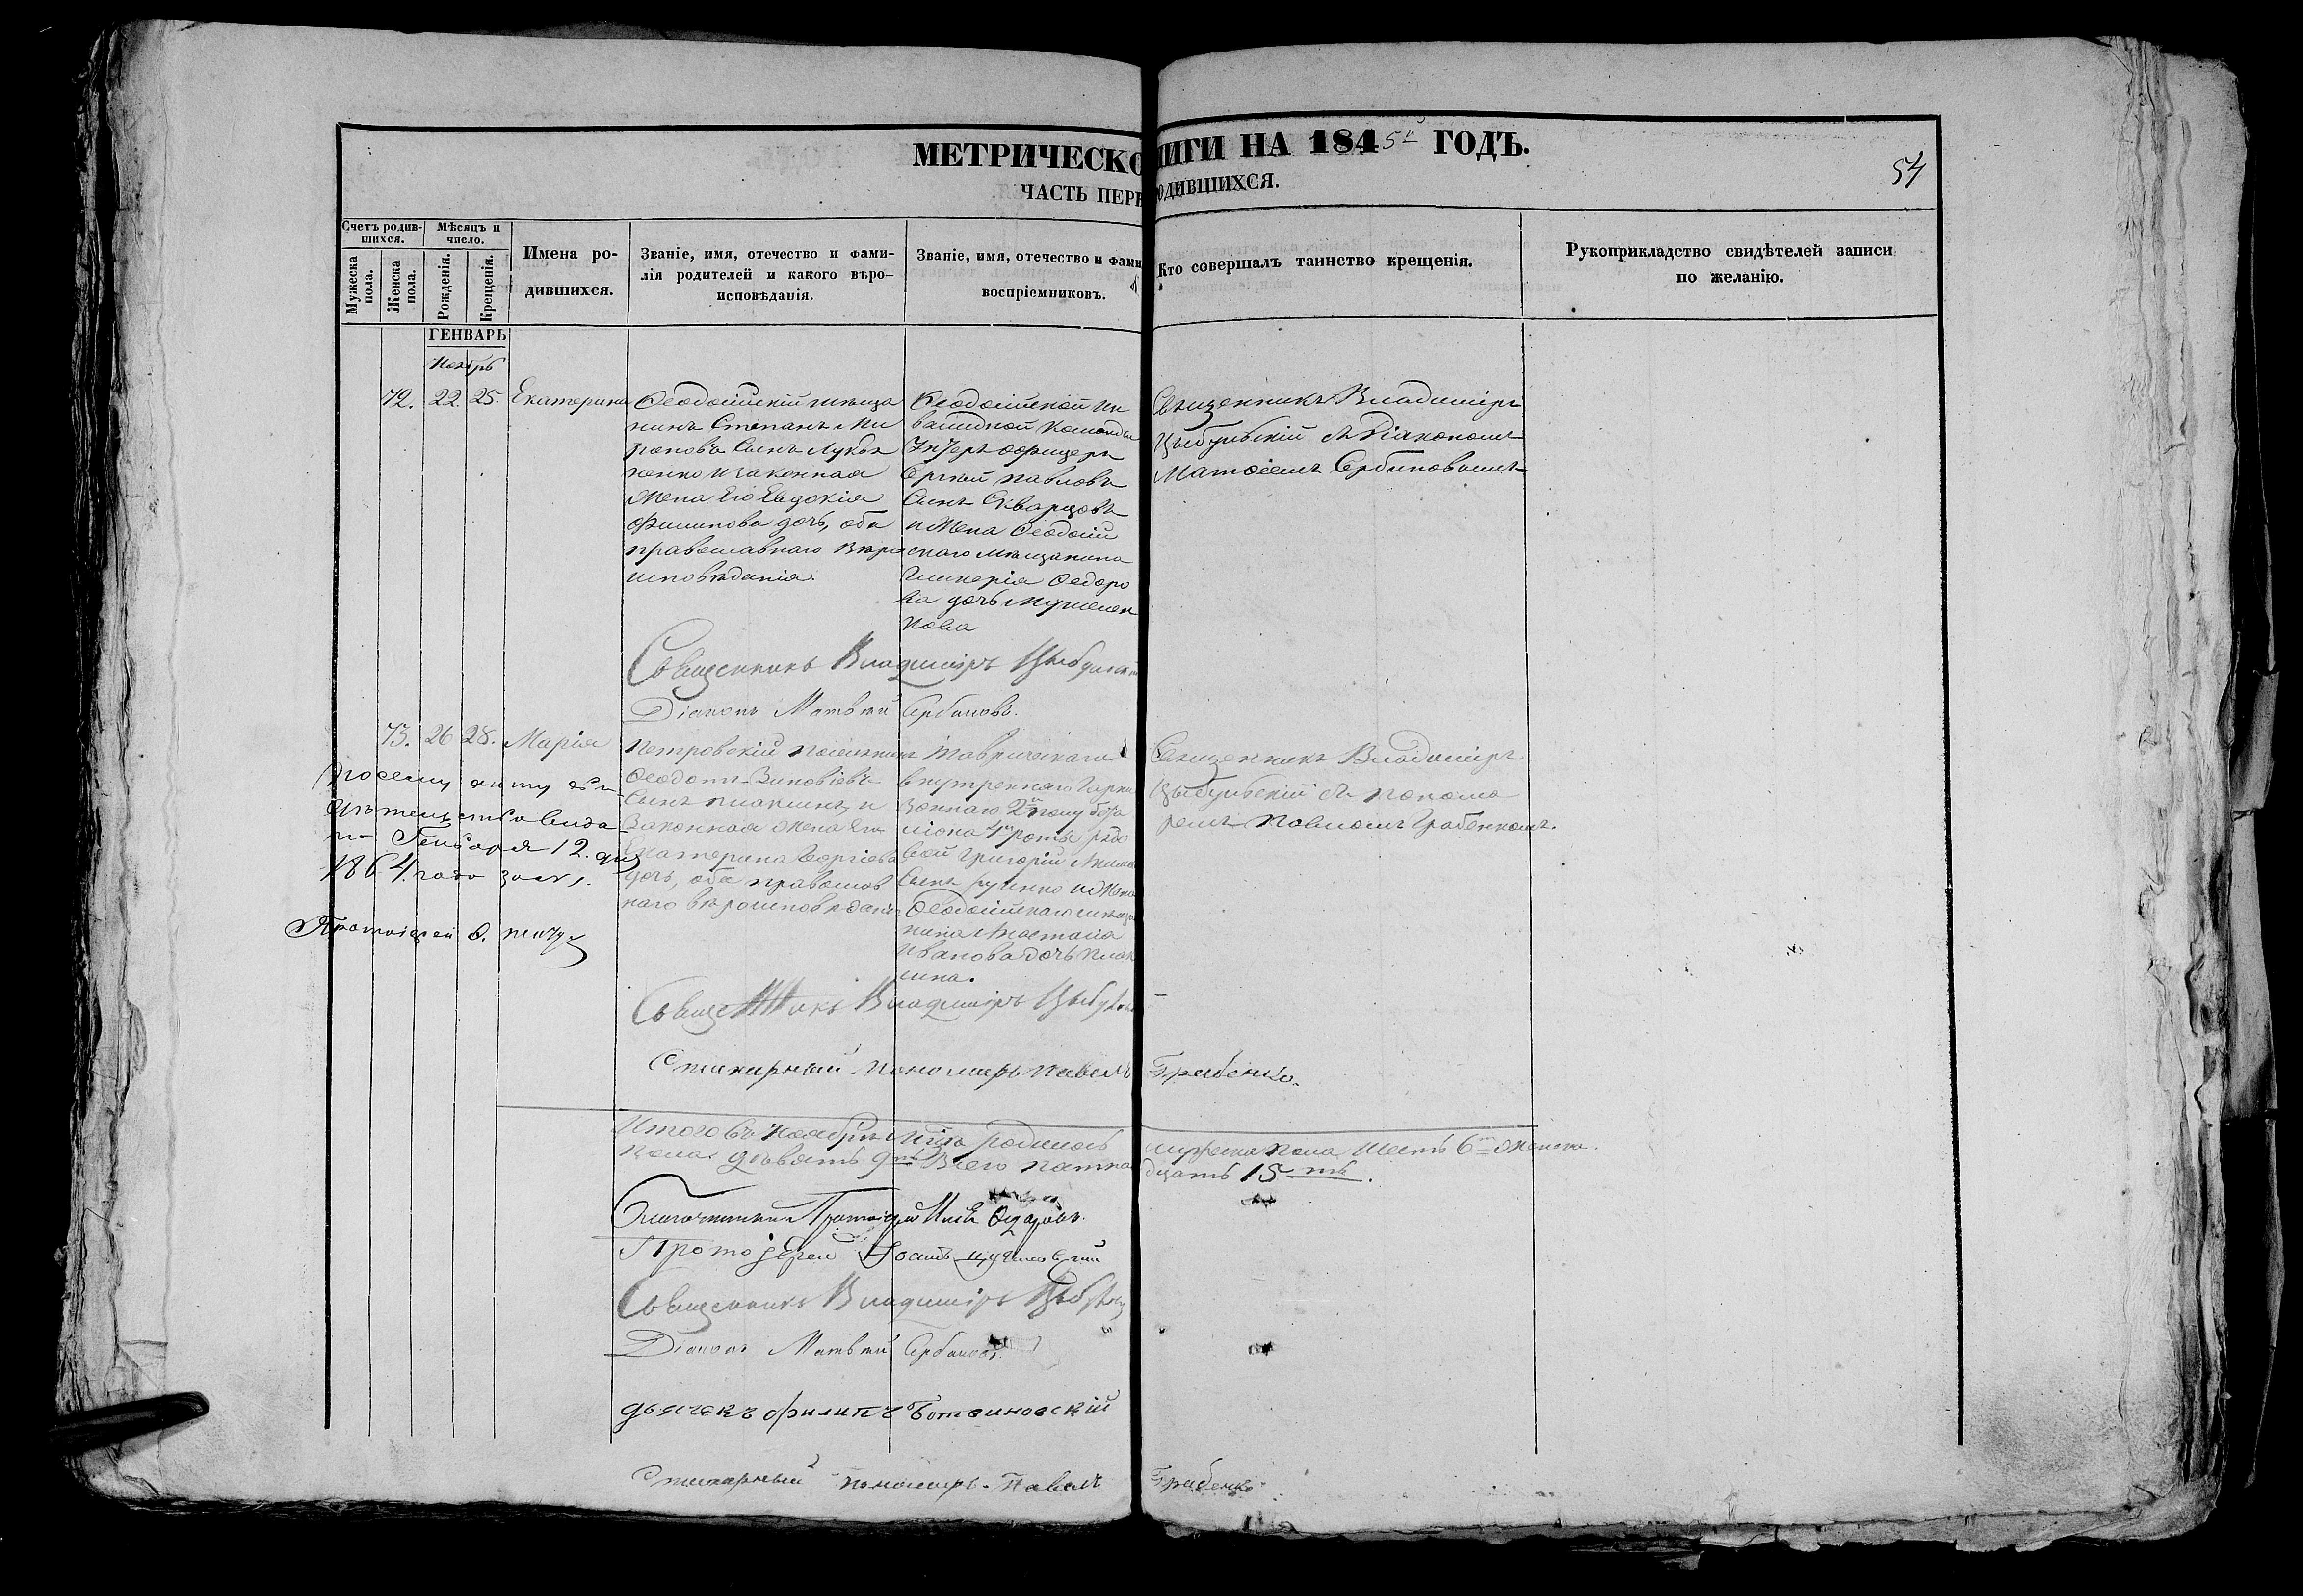 МЕТРИЧЕСКО
НИГИ НА 1845й ГОДЪ.
54
ЧАСТЬ ПЕРВ
ОДИВШИХСЯ.
Счетъ родив-
шихся.
Мужеска
пола.
Женска
пола.
Мѣсяцъ и
число.
Рожденія.
Крещенія.
Имена ро-
дившихся.
Званіе, имя, отечество и фами-
лія родителей и какого вѣро-
исповѣданія.
Званіе, имя, отечество и фами
воспріемниковъ.
Кто совершалъ таинство крещенія.
Рукоприкладство свидѣтелей записи
по желанію.
ГЕНВАРЬ
Ноябрь
72. 22. 25. Екатерина
Ѳеодосійскій мѣща
нинъ Степанъ
сынъ
и законная
жена его Евдокія
Филипова дочь, оба
православнаго вѣро
исповѣданія.
Ѳеодосійской ин
валидной команды
Унтеръ офицеръ
Сергѣй Павловъ
сынъ Скварцовъ
и жена Ѳеодосій
скаго мѣщанина
Гликерія Ѳедоро
ва дочь
нова
Священникъ Владиміръ
Цыбульскій съ Діакономъ
Матѳіемъ Сербиновымъ
Священникъ Владиміръ Цыбульскій
Діаконъ Матвѣй Сербиновъ.
73. 26 28. Марія
Петровскій поселянинъ
Ѳеодотъ Зиновіевъ
сынъ Плакшинъ и
законная жена его
Екатерина Георгіева
дочь, оба православ
наго вѣроисповѣданія
Таврическаго
внутренняго гарни
зоннаго 2го полу бата
ліона 4й роты рядо
вой Григорій
сынъ Руденко и жена
Ѳеодосійскаго мѣща
нина Анастасія
Иванова дочь Плак
шина.
Священникъ Владиміръ
Цыбульскій съ понома
ремъ Павломъ Грабенкомъ.
По сему акту сви
дѣтельство выда
но Генваря 12. дня
1864. года за № 1.
Протоіерей
Священникъ Владиміръ Цыбульс
Стихарный пономарь Павелъ Грабенко.
Итого въ Ноябрѣ м-цѣ родилось мужеска пола шесть 6ть женска
пола девять 9ть Всего пятнадцать 15ть.
Благочинный Протоіерей
Протоіерей
Священникъ Владиміръ Цыбульс
Діаконъ Матвѣй Сербиновъ
дьячекъ Филипъ Ботвиновскій
Стихарный пономарь Павелъ Грабенко